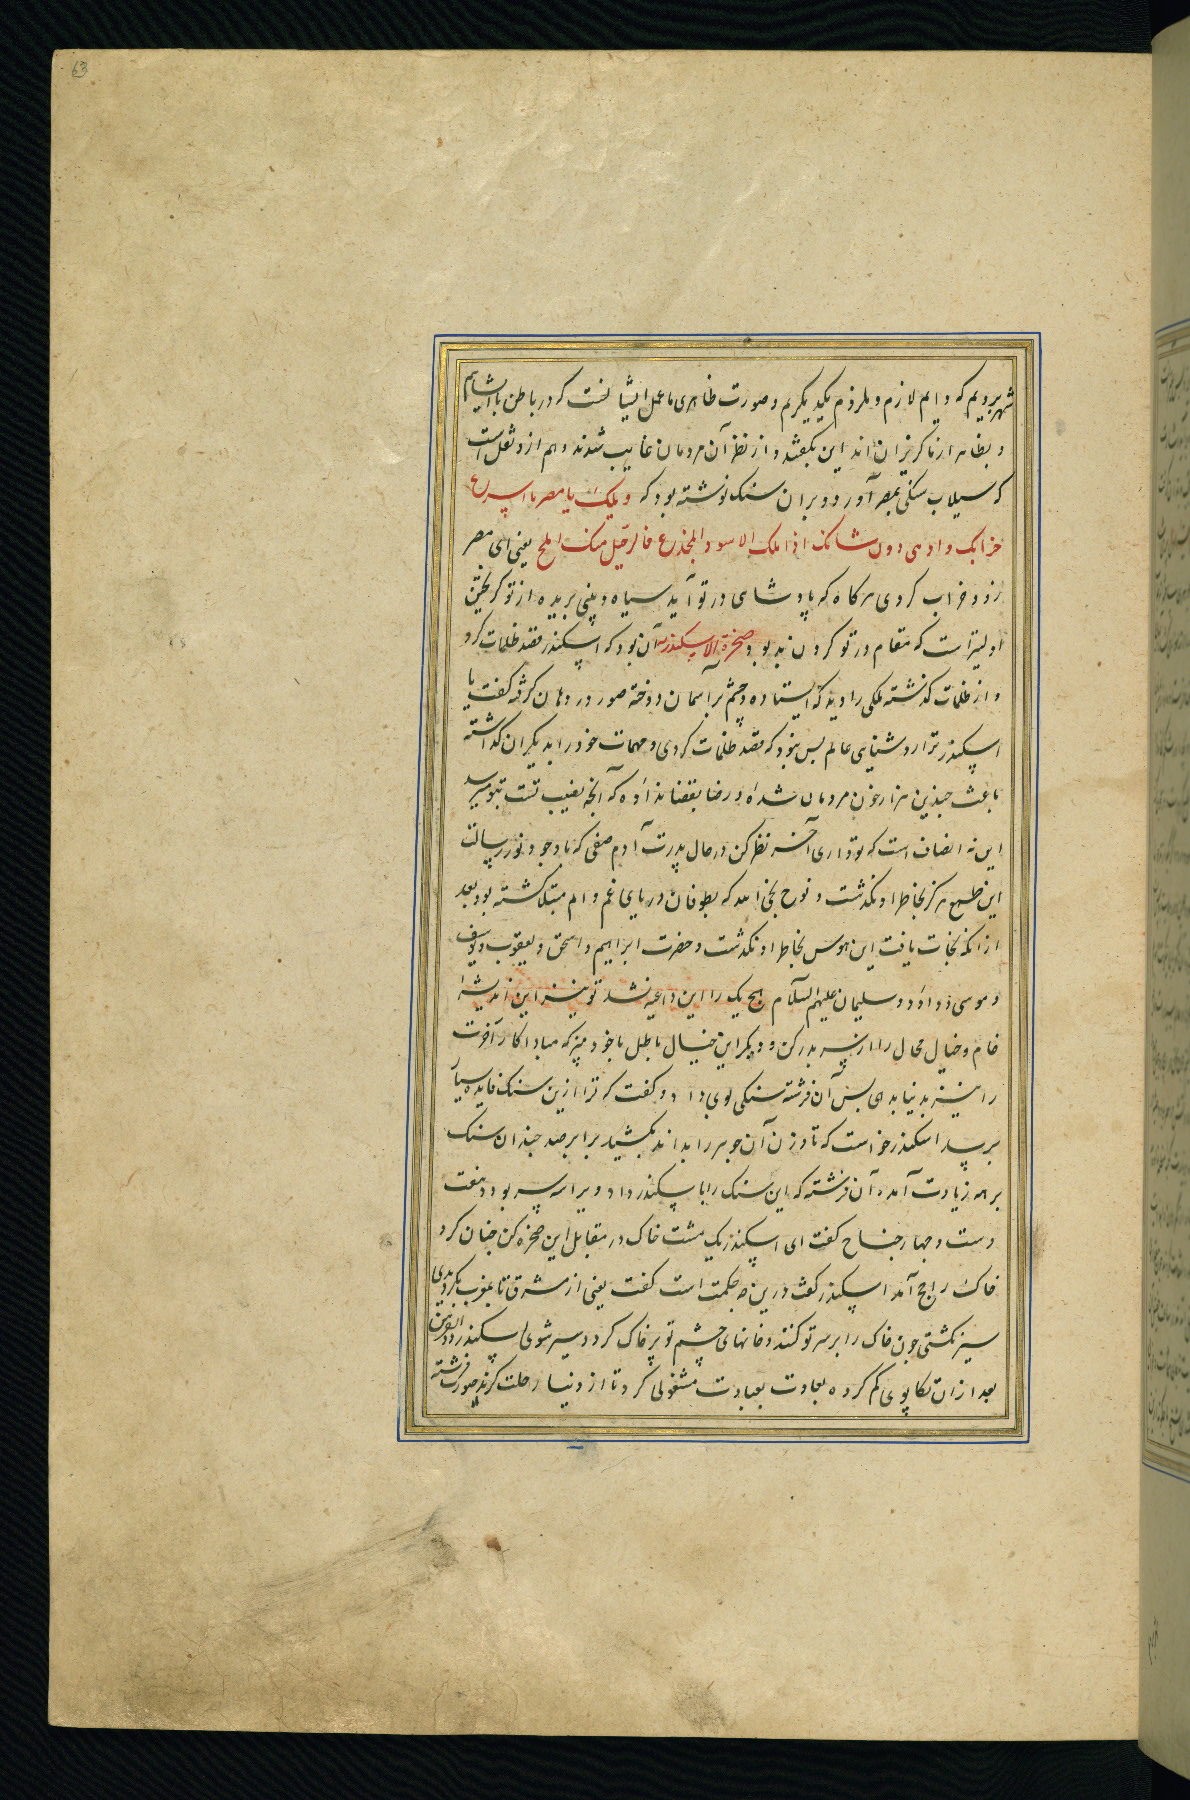 63
شهر برویم که دایم لازم و ملزوم یکدیگریم و صورت ظاهری ما عمل ایشانست که در باطن با ایشانیم
و بظاهر از ما گریزان اند این بگفتند و از نظر آن مردمان غایب شدند و هم از و نقل است
که سیلاب سنکی بمصر آورد و بر ان سنک نوشته بود که ویلک یا مصر ما اسرع
خرابک و ادهی دون شانک اذا ملک الاسود المجدع فالرحیل منک املح یعنی ای مصر
زود خراب کردی هرکاه که پادشاهی در تو آید سیاه و بینی بریده از تو کریختن
اولیتر است که مقام در تو کردن بد بود صخرة الاسکندر آن بود که اسکندر قصد ظلمات کرد
و از ظلمات کذشته ملکی را دید که ایستاده و چشم بر آسمان دوخته صور در دهان کرفته کفت یا
اسکندر ترا روشنایی عالم بس نبود که قصد ظلمات کردی و مهمات خود را بدیکران کذاشته
باعث چندین هزار خون مردمان شده و رضا بقضا نداده که آنچه نصیب تست بتو میرسد
این نه انصاف است که تو داری آخر نظر کن در حال پدرت آدم صفی که با وجود نور رسالت
این طمع هرکز بخاطر او نکذشت و نوح نجی الله که بطوفان دریای غم و الم مبتلا کشته بود بعد
از انکه نجات یافت این هوس بخاطر او نکذشت و حضرت ابراهیم و اسحق و یعقوب و یوسف
و موسی و داود و سلیمان علیهم السلام هیچ یک را این داعیه نشد تو نیز این اندیشه
خام و خیال محال را از سر بدر کن و دیکر این خیال باطل با خود مپز که مبادا کار آخرت
را نیز بدنیا بدهی پس آن فرشته سنکی بوی داد و کفت که ترا ازین سنک فایده بسیار
برسد اسکندر خواست که تا وزن آن جوهر را بداند بکشید برابر صد چندان سنک
بر همه زیادت آمد آن فرشته که این سنک را با سکندر داد ویرا سه سر بود و هفت
دست و چهار جناح کفت ای اسکندر یک مشت خاک در مقابل این صخره کن چنان کرد
خاک راجح آمد اسکندر کفت درین چه حکمت است کفت یعنی از مشرق تا بمغرب بکردیدی
سیر نکشتی چون خاک را بر سر تو کنند و خانهای چشم تو پر خاک کردد سیر شوی اسکندر ذوالقرنین
بعد از ان تکاپوی کم کرده بعادت بعبادت مشغولی کرد تا از دنیا رحلت کرد صورت فرشته